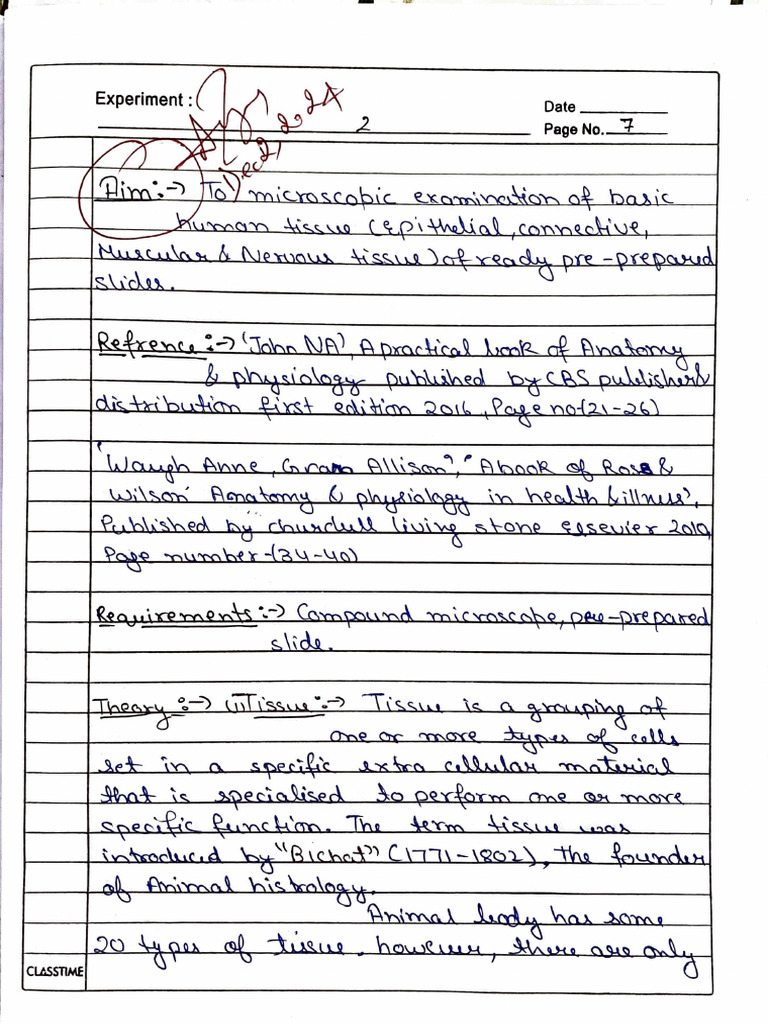 Experiment :
2
Date
Page No. 7
Dec 21, 2024
Aim :-> To microscopic examination of basic
human tissue (Epithelial, connective,
Muscular & Nervous tissue) of ready pre-prepared
slides.
Refrence :-> 'John NA', A practical book of Anatomy
& physiology published by CBS publisher &
distribution first edition 2016, Page no-(21-26)
'Waugh Anne, Gran Allison', 'A book of Ross &
Wilson Anatomy & physiology in health & illness',
Published by churchill living stone Elsevier 2010,
Page number-(34-40)
Requirements :-> Compound microscope, pre-prepared
slide.
Theory :-> (1) Tissue :-> Tissue is a grouping of
one or more types of cells
set in a specific extra cellular material
that is specialised to perform one or more
specific function. The term tissue was
introduced by "Bichat" (1771-1802), the founder
of Animal histrology.
Animal body has some
20 types of tissue. however, there are only
CLASSTIME